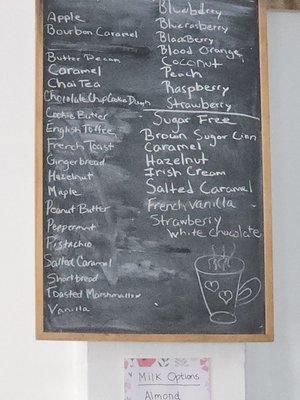 Apple
Bourbon Caramel
Butter Pecan
Caramel
Chai Tea
Chocolate Chip Cookie Dough
Cookie Butter
English Toffee
French Toast
Gingerbread
Hazelnut
Maple
Peanut Butter
Peppermint
Pistachio
Salted Caramel
Shortbread
Toasted Marshmallow
Vanilla
Blueberry
Blackberry
Blood Orange
Coconut
Peach
Raspberry
Strawberry
Sugar Free
Brown Sugar Cinn
Caramel
Hazelnut
Irish Cream
Salted Caramel
French Vanilla
Strawberry
White chocolate
Milk Options
Almond